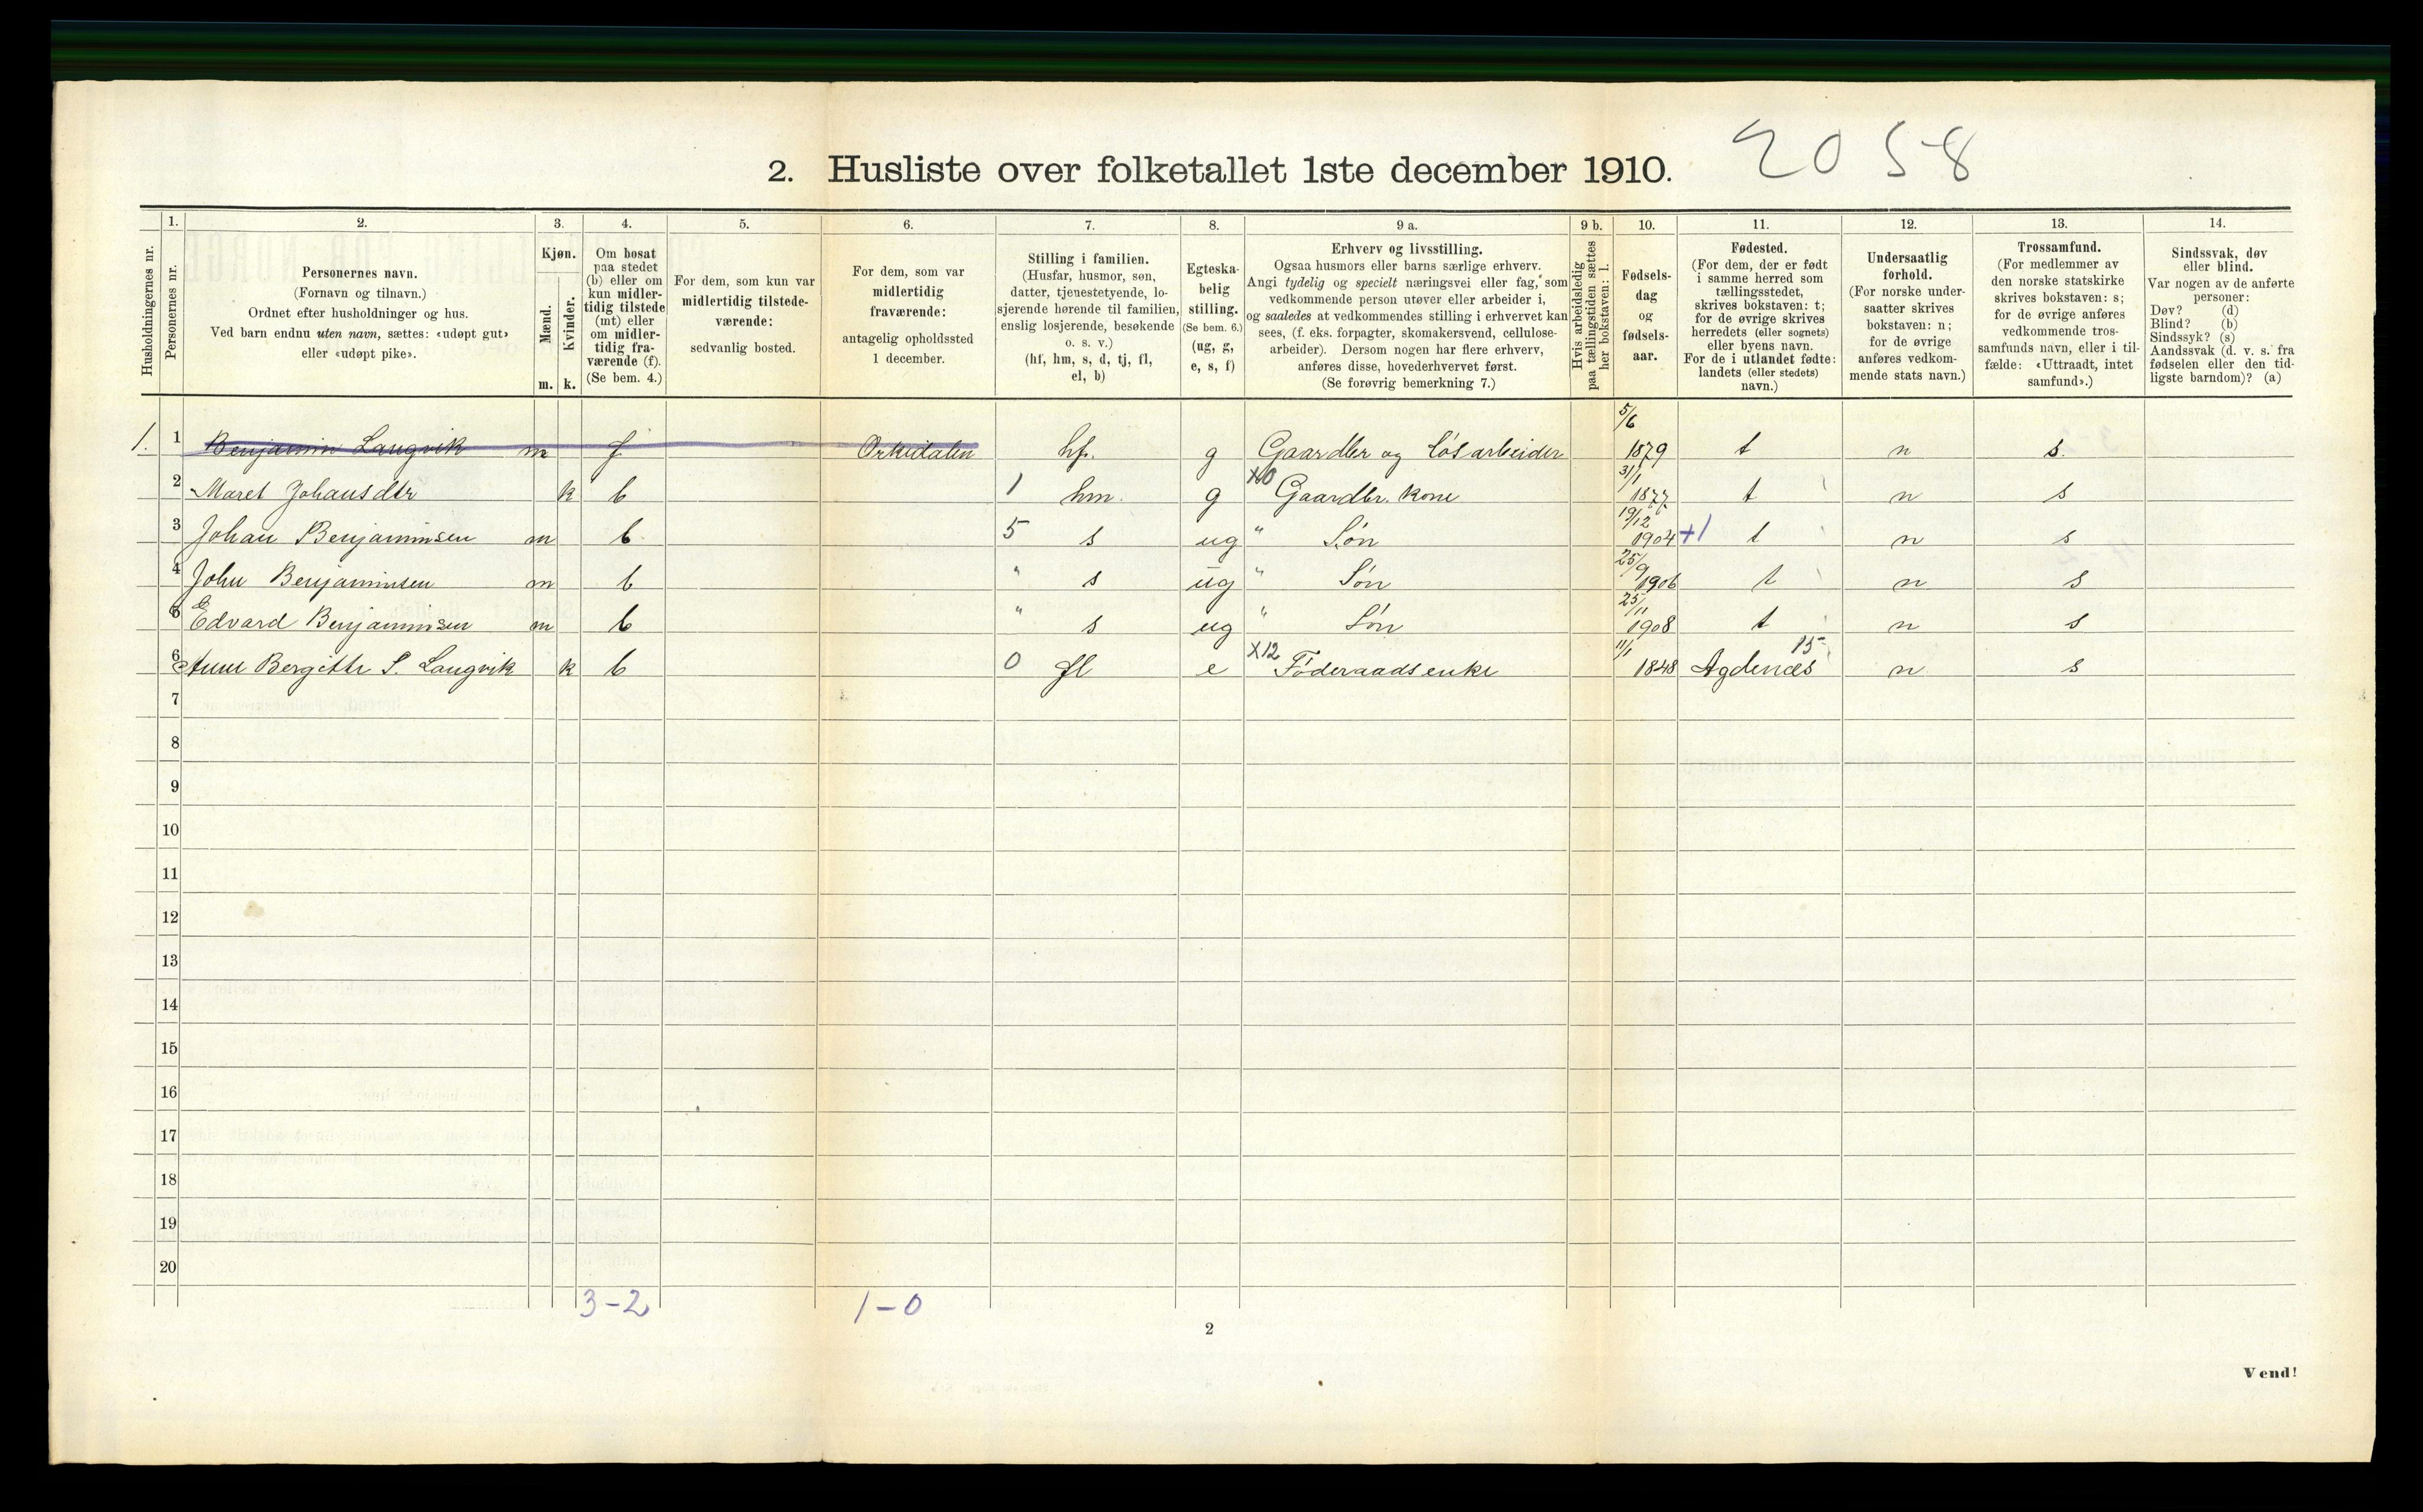 2. Husliste over folketallet 1ste december 1910. 2058
1. 2. 3. 4. 5. 6. 7. 8. 9 a. 9 b. 10. 11. 12. 13. 14.
Husholdningernes nr.
Personernes nr.
Personernes navn.
(Fornavn og tilnavn.)
Ordnet efter husholdninger og hus.
Ved barn endnu uten navn, sættes: «udøpt gut»
eller «udøpt pike».
Kjøn.
Mænd.
Kvinder.
m. k.
Om bosat
paa stedet
(b) eller om
kun midler-
tidig tilstede
(mt) eller
om midler-
tidig fra-
værende (f).
(Se bem. 4.)
For dem, som kun var
midlertidig tilstede-
værende:
sedvanlig bosted.
For dem, som var
midlertidig
fraværende:
antagelig opholdssted
1 december.
Stilling i familien.
(Husfar, husmor, søn,
datter, tjenestetyende, lo-
sjerende hørende til familien,
enslig losjerende, besøkende
o. s. v.)
(hf, hm, s, d, tj, fl,
el, b)
Egteska-
belig
stilling.
(Se bem. 6.)
(ug, g,
e, s, f)
Erhverv og livsstilling.
Ogsaa husmors eller barns særlige erhverv.
Angi tydelig og specielt næringsvei eller fag, som
vedkommende person utøver eller arbeider i,
og saaledes at vedkommendes stilling i erhvervet kan
sees, (f. eks. forpagter, skomakersvend, cellulose-
arbeider). Dersom nogen har flere erhverv,
anføres disse, hovederhvervet først.
(Se forøvrig bemerkning 7.)
Hvis arbeidsledig
paa tællingstiden sættes
her bokstaven: l.
Fødsels-
dag
og
fødsels-
aar.
Fødested.
(For dem, der er født
i samme herred som
tællingsstedet,
skrives bokstaven: t;
for de øvrige skrives
herredets (eller sognets)
eller byens navn.
For de i utlandet fødte:
landets (eller stedets)
navn.)
Undersaatlig
forhold.
(For norske under-
saatter skrives
bokstaven: n;
for de øvrige
anføres vedkom-
mende stats navn.)
Trossamfund.
(For medlemmer av
den norske statskirke
skrives bokstaven: s;
for de øvrige anføres
vedkommende tros-
samfunds navn, eller i til-
fælde: «Uttraadt, intet
samfund».)
Sindssvak, døv
eller blind.
Var nogen av de anførte
personer:
Døv? (d)
Blind? (b)
Sindssyk? (s)
Aandssvak (d. v. s. fra
fødselen eller den tid-
ligste barndom)? (a)
1. 1 Benjamin Langvik m f Orkidalen hf. g Gaardbr og Løsarbeider 5/6 1879 t n s.
2 Maret Johansdtr k b 1 hm. g X0 Gaardbr. kone 31/1 1877 t n s
3 Johan Benjaminsen m b 5 s ug " Søn 19/12 1904 +1 t n s
4 John Benjaminsen m b " s ug " Søn 25/9 1906 t n s
5 Edvard Benjaminsen m b " s ug " Søn 25/11 1908 t n s
6 Anne Bergitte S. Langvik k b 0 fl e X12 Føderaadsenke 11/1 1848 15 Agdenæs n s
7
8
9
10
11
12
13
14
15
16
17
18
19
20
3-2 1-0
2
Vend!